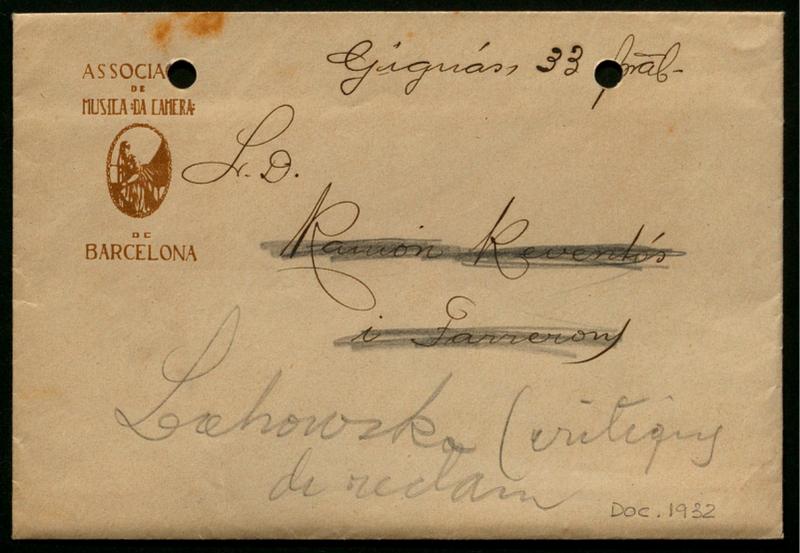 ASSOCIA
DE
MUSICA DA CAMERA
DE
BARCELONA
Gignás, 33 pral-
S. D.
Ramón Reventós
i Farrerons
Lahowska (critiques
de reclam
Doc. 1932